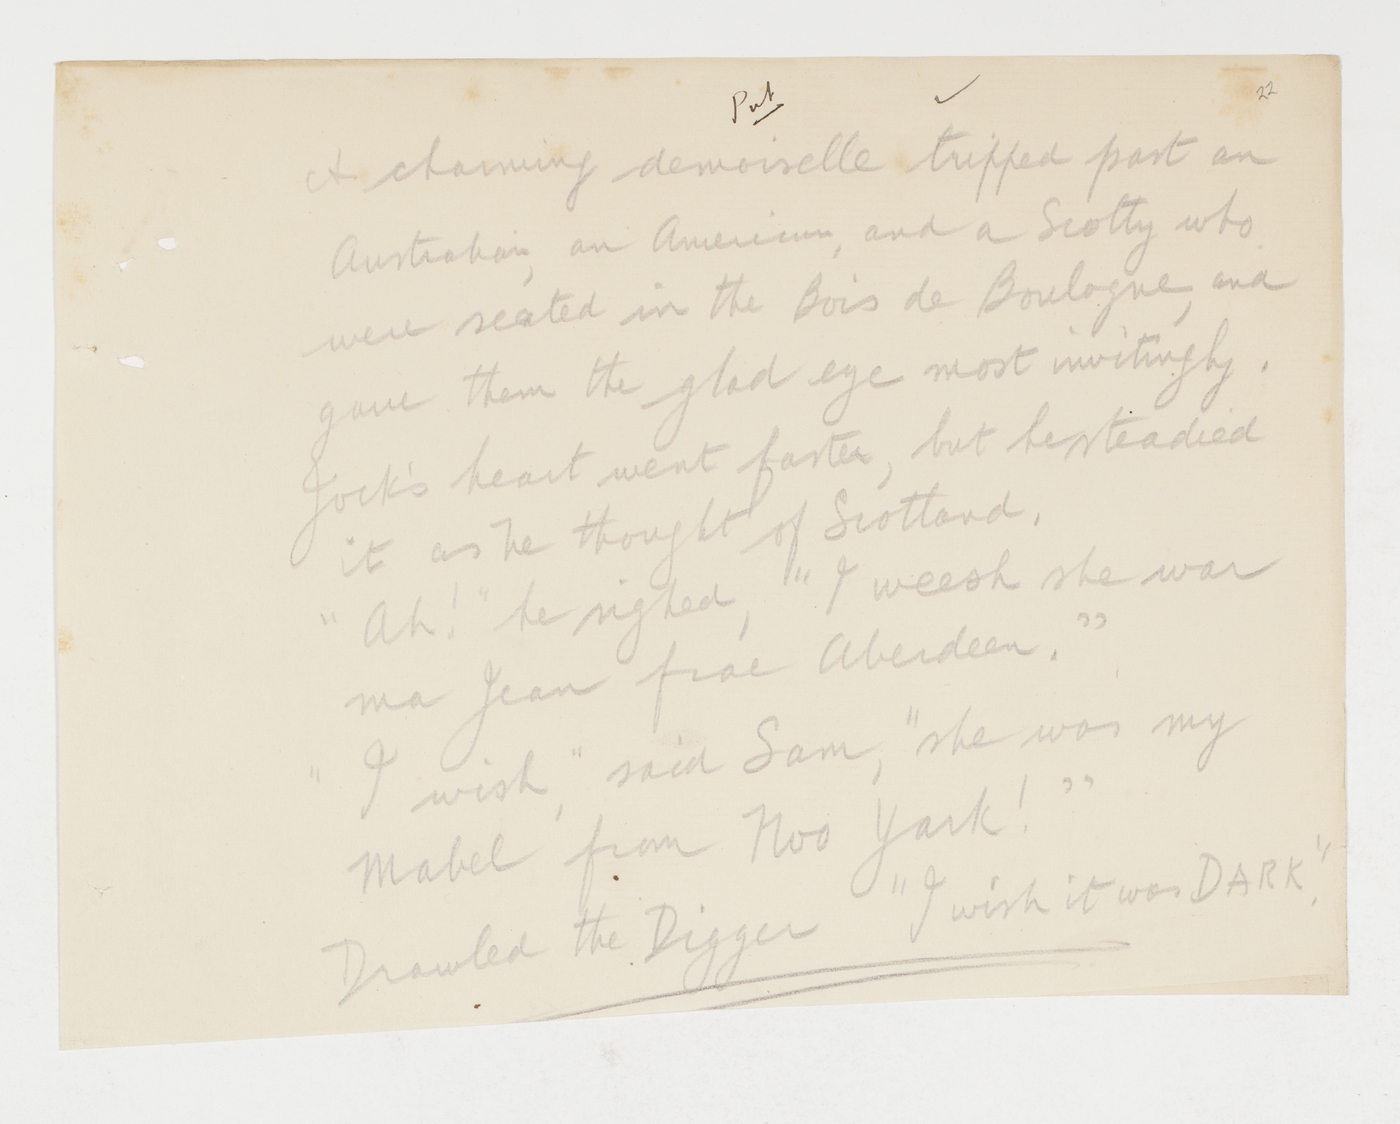 Put ✓ 22
A charming demoiselle tripped past an
Australian, an American, and a Scotty who
were seated in the Bois de Boulogne, and
gave them the glad eye most invitingly.
Jock's heart went faster, but he steadied
it as he thought of Scotland.
"Ah!" he sighed, "I weesh she war
ma Jean frae Aberdeen."
"I wish," said Sam, "she was my
Mabel from Noo Yark!"
Drawled the Digger "I wish it was DARK."